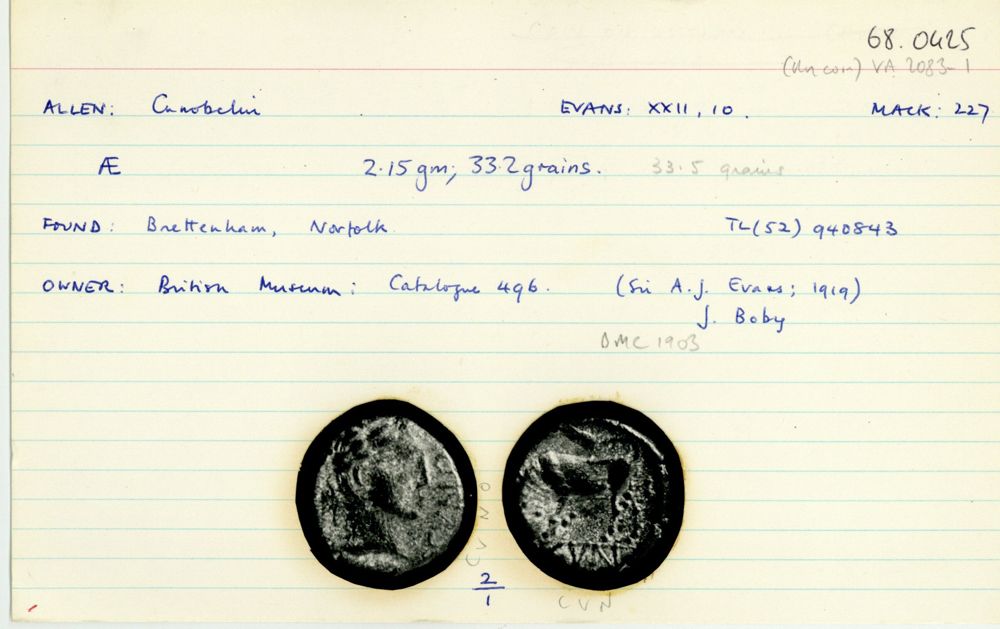 68.0425
(Uncom) VA 2083-1
ALLEN: Cunobelin EVANS: XXII, 10. MACK: 227
Æ 2.15 gm; 33.2 grains. 33.5 grains
FOUND: Brettenham, Norfolk. TL(52) 940843
OWNER: British Museum: Catalogue 496. (Sir A.J. Evans; 1919)
J. Boby
BMC 1903
CVNO
2
1
CVN